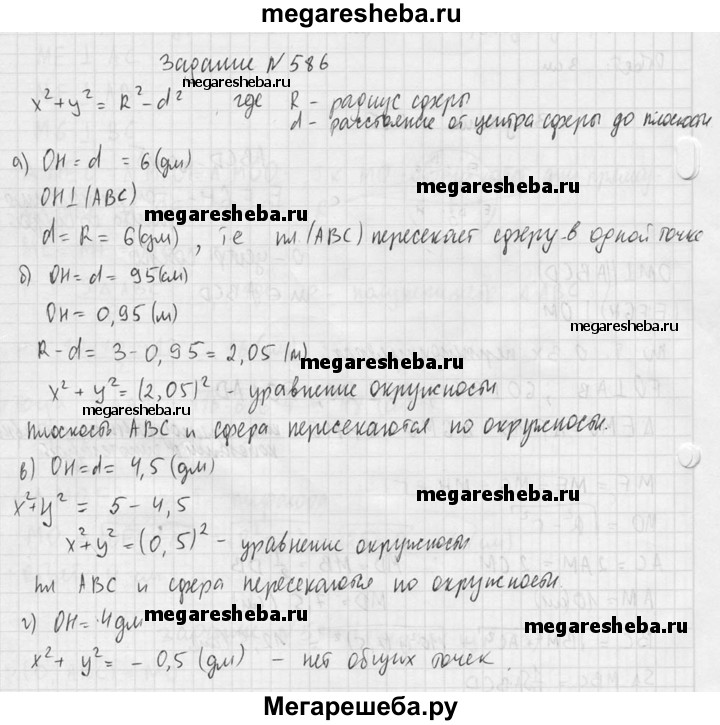 megaresheba.ru
Задание №586
megaresheba.ru
x²+y²= R²-d² где R - радиус сферы
d - расстояние от центра сферы до плоскости
а) OH = d = 6(дм)
OH⊥(ABC)
megaresheba.ru
d = R = 6(дм), т.е пл.(ABC) пересекает сферу в одной точке
б) OH=d= 95(см)
OH= 0,95(м)
megaresheba.ru
R-d= 3-0,95=2,05(м)
megaresheba.ru
x²+y²=(2,05)² - уравнение окружности
megaresheba.ru
плоскость ABC и сфера пересекаются по окружности.
в) OH=d= 4,5(дм)
x²+y²= 5-4,5
megaresheba.ru
x²+y²=(0,5)² - уравнение окружности
пл ABC и сфера пересекаются по окружности.
г) OH= 4дм
megaresheba.ru
x²+y²= - 0,5(дм) - нет общих точек.
megaresheba.ru
Мегарешеба.ру